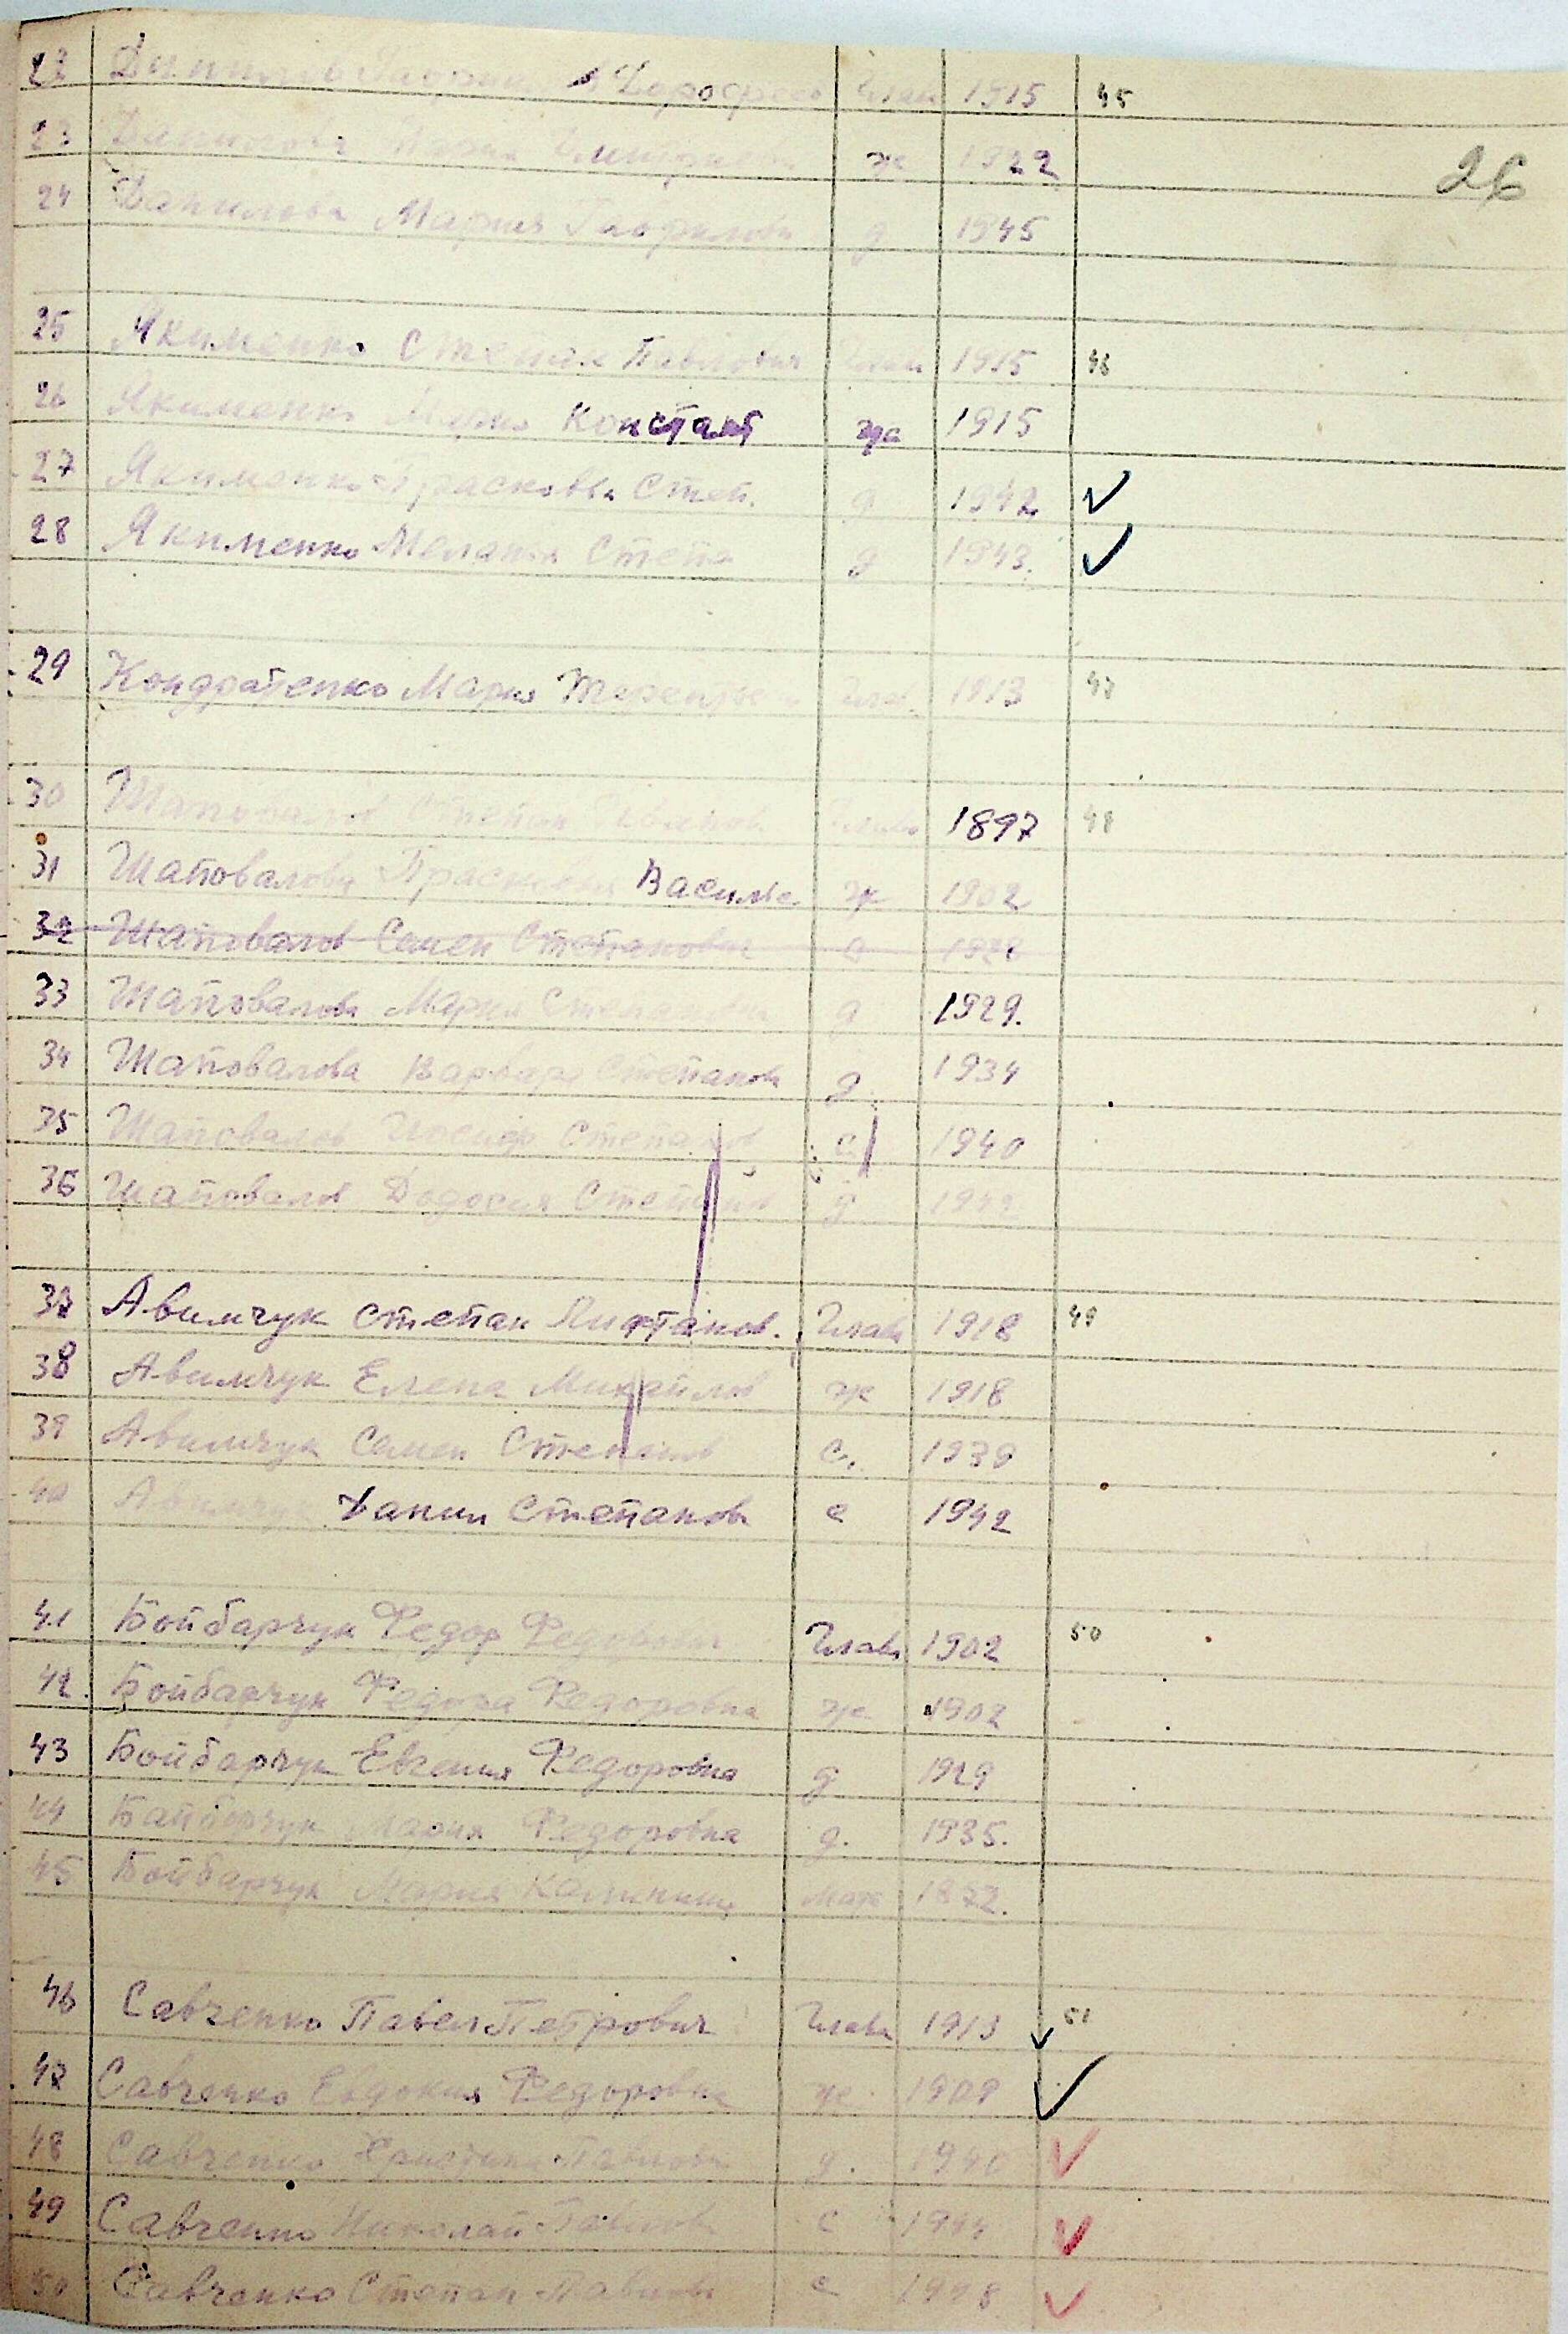 22 Данилов Гаврил Дорофеев глав 1915 45
23 Данилова Мария Дмитриевн ж 1922
26
24 Данилова Мария Гавриловн д 1945
25 Якименко Степан Павлович глав 1915 46
26 Якименко Мария Констант жа 1915
27 Якименко Прасковья Степ. д 1942 ✓
28 Якименко Меланья Степа д 1943. ✓
29 Кондратенко Мария Терентье глав. 1913 47
30 Шаповалов Степан глав 1897 48
31 Шаповалова Прасковья Василье ж 1902
32 Шаповалов Семен Степанович с
33 Шаповалова Мария Степановна д 1929.
34 Шаповалова Варвара Степанов д. 1934
35 Шаповалов Иосиф Степанов с 1940
36 Шаповалов Додосия Степанов д 1942
37 Авимчук Степан глав 1918 49
38 Авимчук Елена Михайлов ж 1918
39 Авимчук Семен Степанов с. 1939
40 Авимчук Данил Степанов с 1942
41 Бойбарчук Федор Федорович глав 1902 50
42. Бойбарчук Федора Федоровна ж 1902
43 Бойбарчук Евгения Федоровна д 1929
44 Байбарчук Мария Федоровна д. 1935.
45 Бойбарчук Мария Калинишн Мать 1872.
46 Савченко Павел Петрович глав 1913 ✓ 51
47 Савченко Евдокия Федоровна ж 1909 ✓
48 Савченко Христина Павловн д. 1940 ✓
49 Савченко Николай Павлов с 1944 ✓
50 Савченко Степан Павлов с 1948 ✓